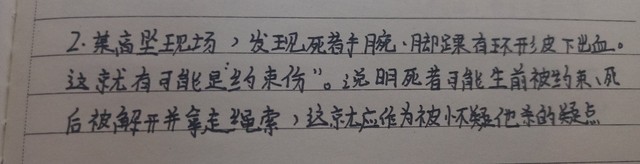 2.某高坠现场，发现死者手腕、脚踝有环形皮下出血。
这就有可能是“约束伤”。说明死者可能生前被约束、死
后被解开并拿走绳索，这就应作为被怀疑他杀的疑点